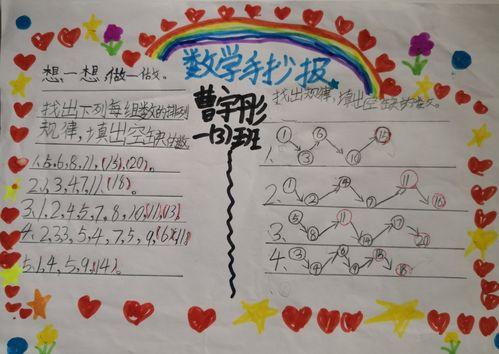 数学手抄报
曹宇彤
一(3)班
想一想,做一做。
找出下列每组数的排列
规律,填出空缺的数
1.5,6,8,11,(15),(20)。
2.1,3,4,7,11,(18)。
3.1,2,4,5,7,8,10,(11),(13)
4.2,3,3,5,4,7,5,9,(6),(11)
5.1,4,5,9,(14)。
找出规律,填出空缺的数。
1. ① ③ ⑥ ⑩ ⑮
2. ① ② ④ ⑦ ⑪ ⑯
3. ⑤ ⑧ ⑪ ⑭ ⑰ ⑳
4. ③ ④ ⑨